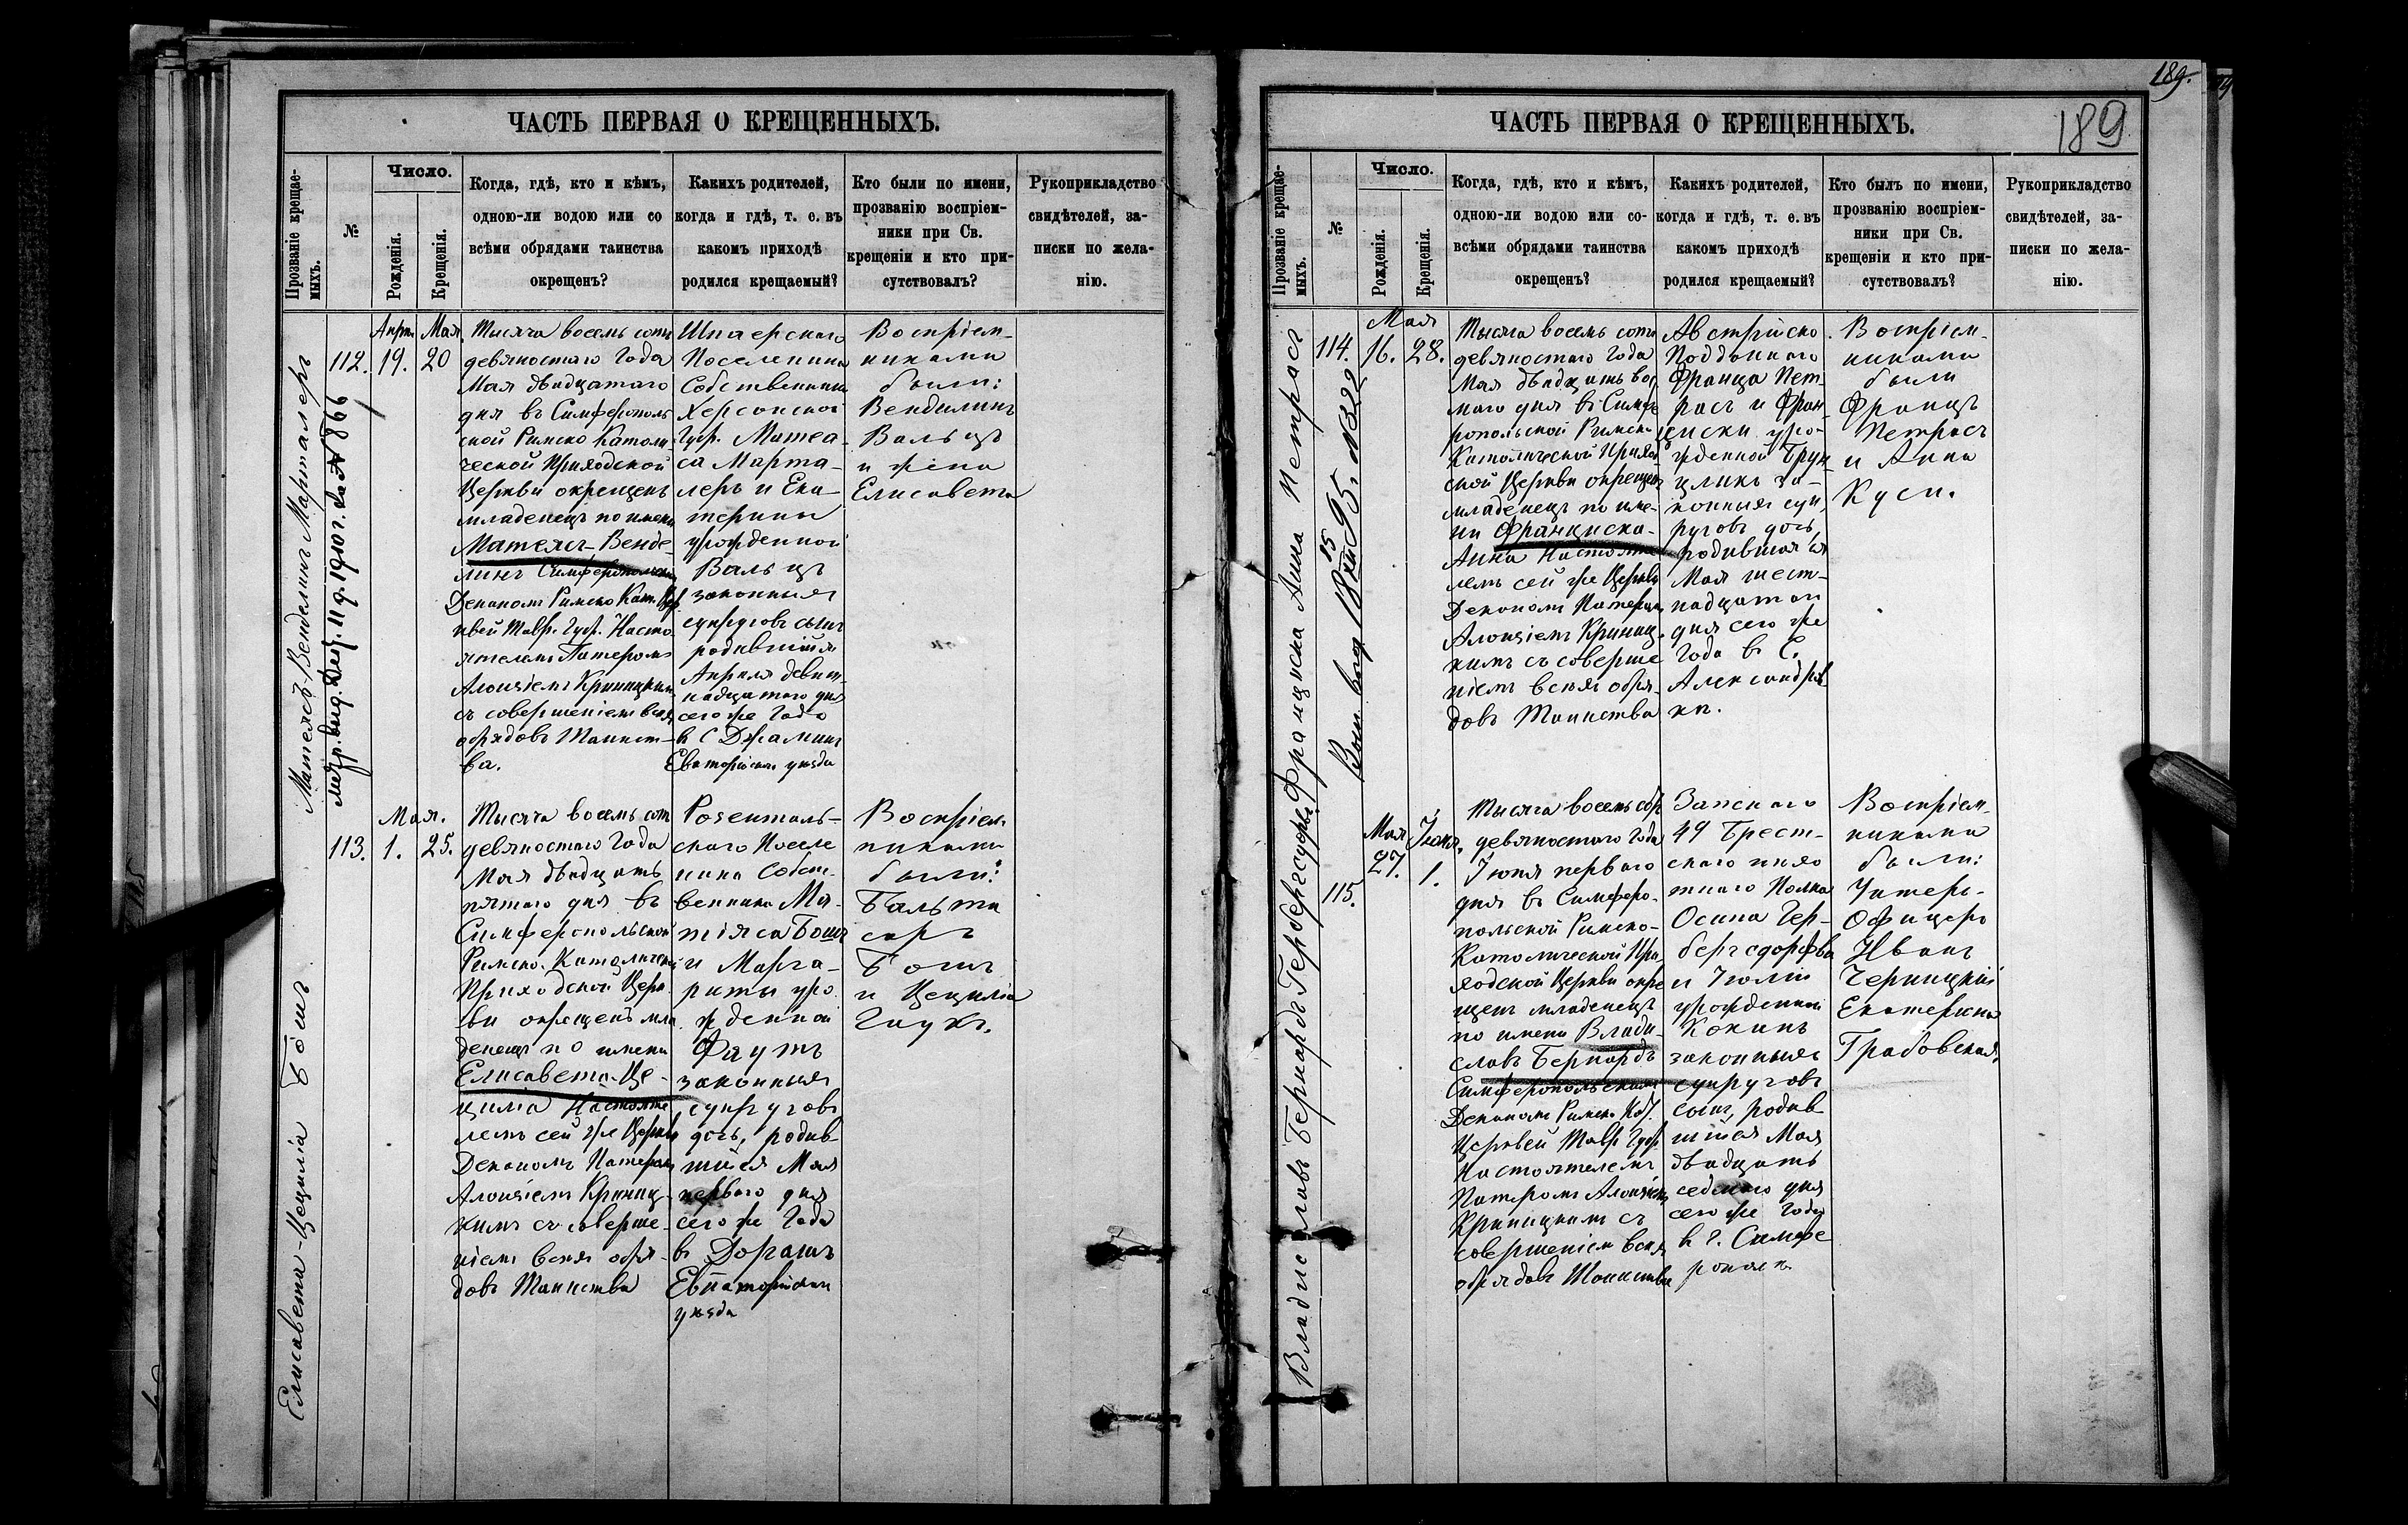 189.
ЧАСТЬ ПЕРВАЯ О КРЕЩЕННЫХЪ.
Прозваніе крещае-
мыхъ.
№
Число.
Рожденія.
Крещенія.
Когда, гдѣ, кто и кѣмъ,
одною-ли водою или со
всѣми обрядами таинства
окрещенъ?
Какихъ родителей,
когда и гдѣ, т. е. въ
какомъ приходѣ
родился крещаемый?
Кто были по имени,
прозванію воспріем-
ники при Св.
крещеніи и кто при-
сутствовалъ?
Рукоприкладство
свидѣтелей, за-
писки по жела-
нію.
Матеясъ-Венделинъ Марталеръ
112.
Апрл. 19.
Мая 20
Тысяча восемь сотъ
девяностаго Года
Мая двадцатаго
дня въ Симферополь
ской Римско Катол
ческой Приходской
Церкви окрещенъ
младенецъ по имени
Матеясъ-Венде-
линъ Симферопольскимъ
Деканомъ Римско Кат. Цер
квей Тавр. Губ. Насто
ятелемъ Патеромъ
Алоизіемъ Криницкимъ
съ совершеніемъ всехъ
обрядовъ Таинст-
ва.
Шпаерскаго
Поселянина
Собственника
Херсонской
Губ. Матеа-
са Марта-
леръ и Ека-
терины
урожденной
Вальцъ
законныхъ
супруговъ сынъ
родившійся
Апреля девят-
надцатаго дня
сего же Года
в С Джаминъ
Евпаторійскаго уѣзда
Воспріем-
никами
были:
Венделинъ
Вальцъ
и жена
Елисавета
Елисавета-Цецилія Бошъ
113.
Мая.
1.
25.
Тысяча восемь сотъ
девяностаго Года
Мая двадцать
пятаго дня въ
Симферопольской
Римско-Католической
Приходской Церк
ви окрещенъ мла
денецъ по имени
Елисавета-Це-
цилія Настояте
лемъ сей же Церкви
Деканомъ Патеромъ
Алоизіемъ Криниц-
кимъ съ соверше-
ніемъ всехъ обря-
довъ Таинства
Розенталь-
скаго Поселя
нина Собст-
венника Ма-
тіяса Бошъ
и Марга-
риты уро
жденной
Фаутъ
законныхъ
супруговъ
дочь, родив-
шийся Мая
перваго дня
сего же Года
в Догашъ
Евпаторійскаго
уѣзда
Воспріем
никами
были:
Бальта
саръ
Бошъ
и Цецилія
Гаукъ.
189
ЧАСТЬ ПЕРВАЯ О КРЕЩЕННЫХЪ.
Прозваніе крещае-
мыхъ.
№
Число.
Рожденія.
Крещенія.
Когда, гдѣ, кто и кѣмъ,
одною-ли водою или со-
всѣми обрядами таинства
окрещенъ?
Какихъ родителей,
когда и гдѣ, т. е. въ
какомъ приходѣ
родился крещаемый?
Кто былъ по имени,
прозванію воспріем-
ники при Св.
крещеніи и кто при-
сутствовалъ?
Рукоприкладство
свидѣтелей, за-
писки по жела-
нію.
Франциска Анна Петрася
114.
Мая
16.
28.
Тысяча восемь сотъ
девяностаго Года
Мая двадцать вось
маго дня въ Симфе
ропольской Римско
Католической Приход
ской Церкви окрещенъ
младенецъ по име-
ни Франциска-
Анна Настояте
лемъ сей же Церкви
Деканомъ Патеромъ
Алоизіемъ Криниц-
кимъ съ соверше
ніемъ всехъ обря-
довъ Таинства
Австрійско
Подданнаго
Франца Пет-
расъ и Фран-
циски уро-
жденной Брун
цликъ за-
конныхъ суп-
руговъ дочь,
родившая ся
Мая шест-
надцатаго
дня сего же
Года въ С.
Александров-
ки.
Воспріем-
никами
были
Францъ
Петрасъ
и Анна
Куси.
Владиславъ Бернардъ Гербергсдорфъ
115.
Мая 27.
Іюня 1.
Тысяча восемь сотъ
девяностаго Года
Іюня перваго
дня въ Симферо-
польской Римско-
Католической При
ходской Церкви окре
щенъ младенецъ
по имени Влади-
славъ Бернардъ
Симферопольскимъ
Деканомъ Римско Кат.
Церквей Тавр. Губ.
Настоятелемъ
Патеромъ Алоизіемъ
Криницкимъ съ
совершеніем всехъ
обрядовъ Таинства
Запснаго
49 Брест-
скаго пехо
тнаго Полка
Осипа Гер-
бергсдорфва
и Юліи
урожденной
Кокинъ
законныхъ
супруговъ
сынъ, родив
шійся Мая
двадцать
седьмаго дня
сего же Года
в г. Симфе
рополѣ.
Воспріем-
никами
были:
Унтеръ-
Офицеръ
Иванъ
Черницкій
Екатерина
Грабовская.